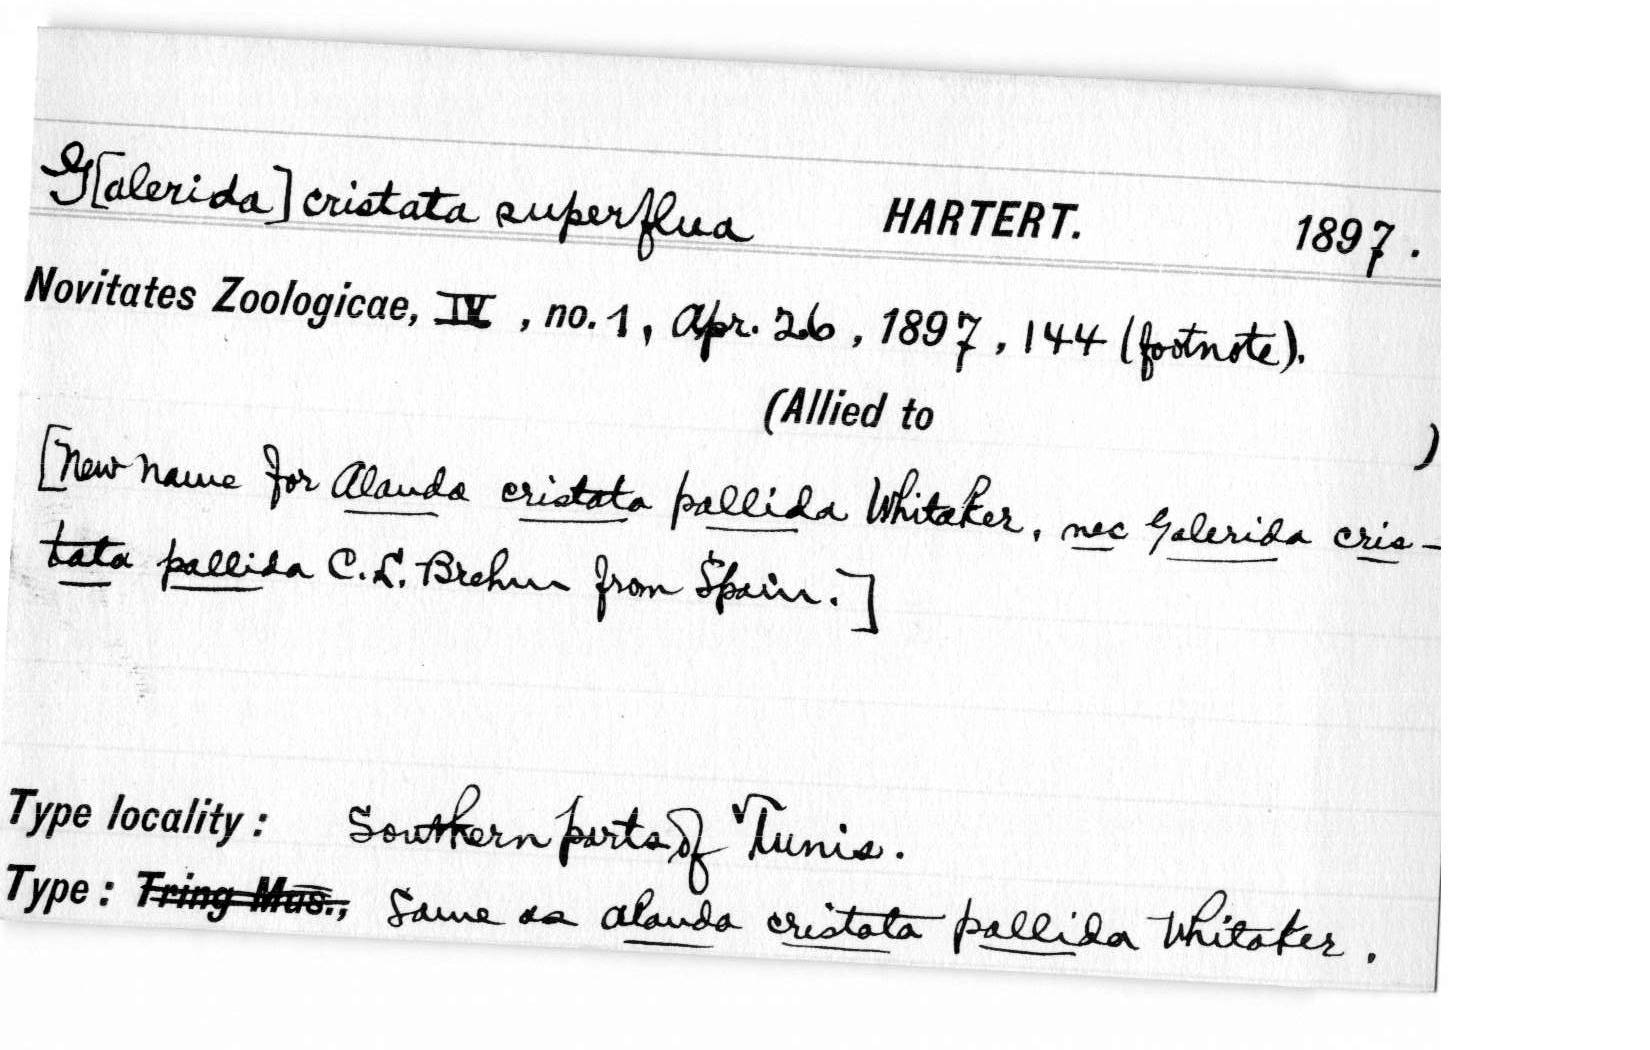 G[alerida] cristata superflua HARTERT. 1897.
Novitates Zoologicae, IV, no. 1, Apr. 26, 1897, 144 (footnote).
(Allied to )
[New name for Alauda cristata pallida Whitaker, nec Galerida cris-
tata pallida C. L. Brehm from Spain.]
Type locality: Southern parts of Tunis.
Type: Tring Mus., Same as Alauda cristata pallida Whitaker.